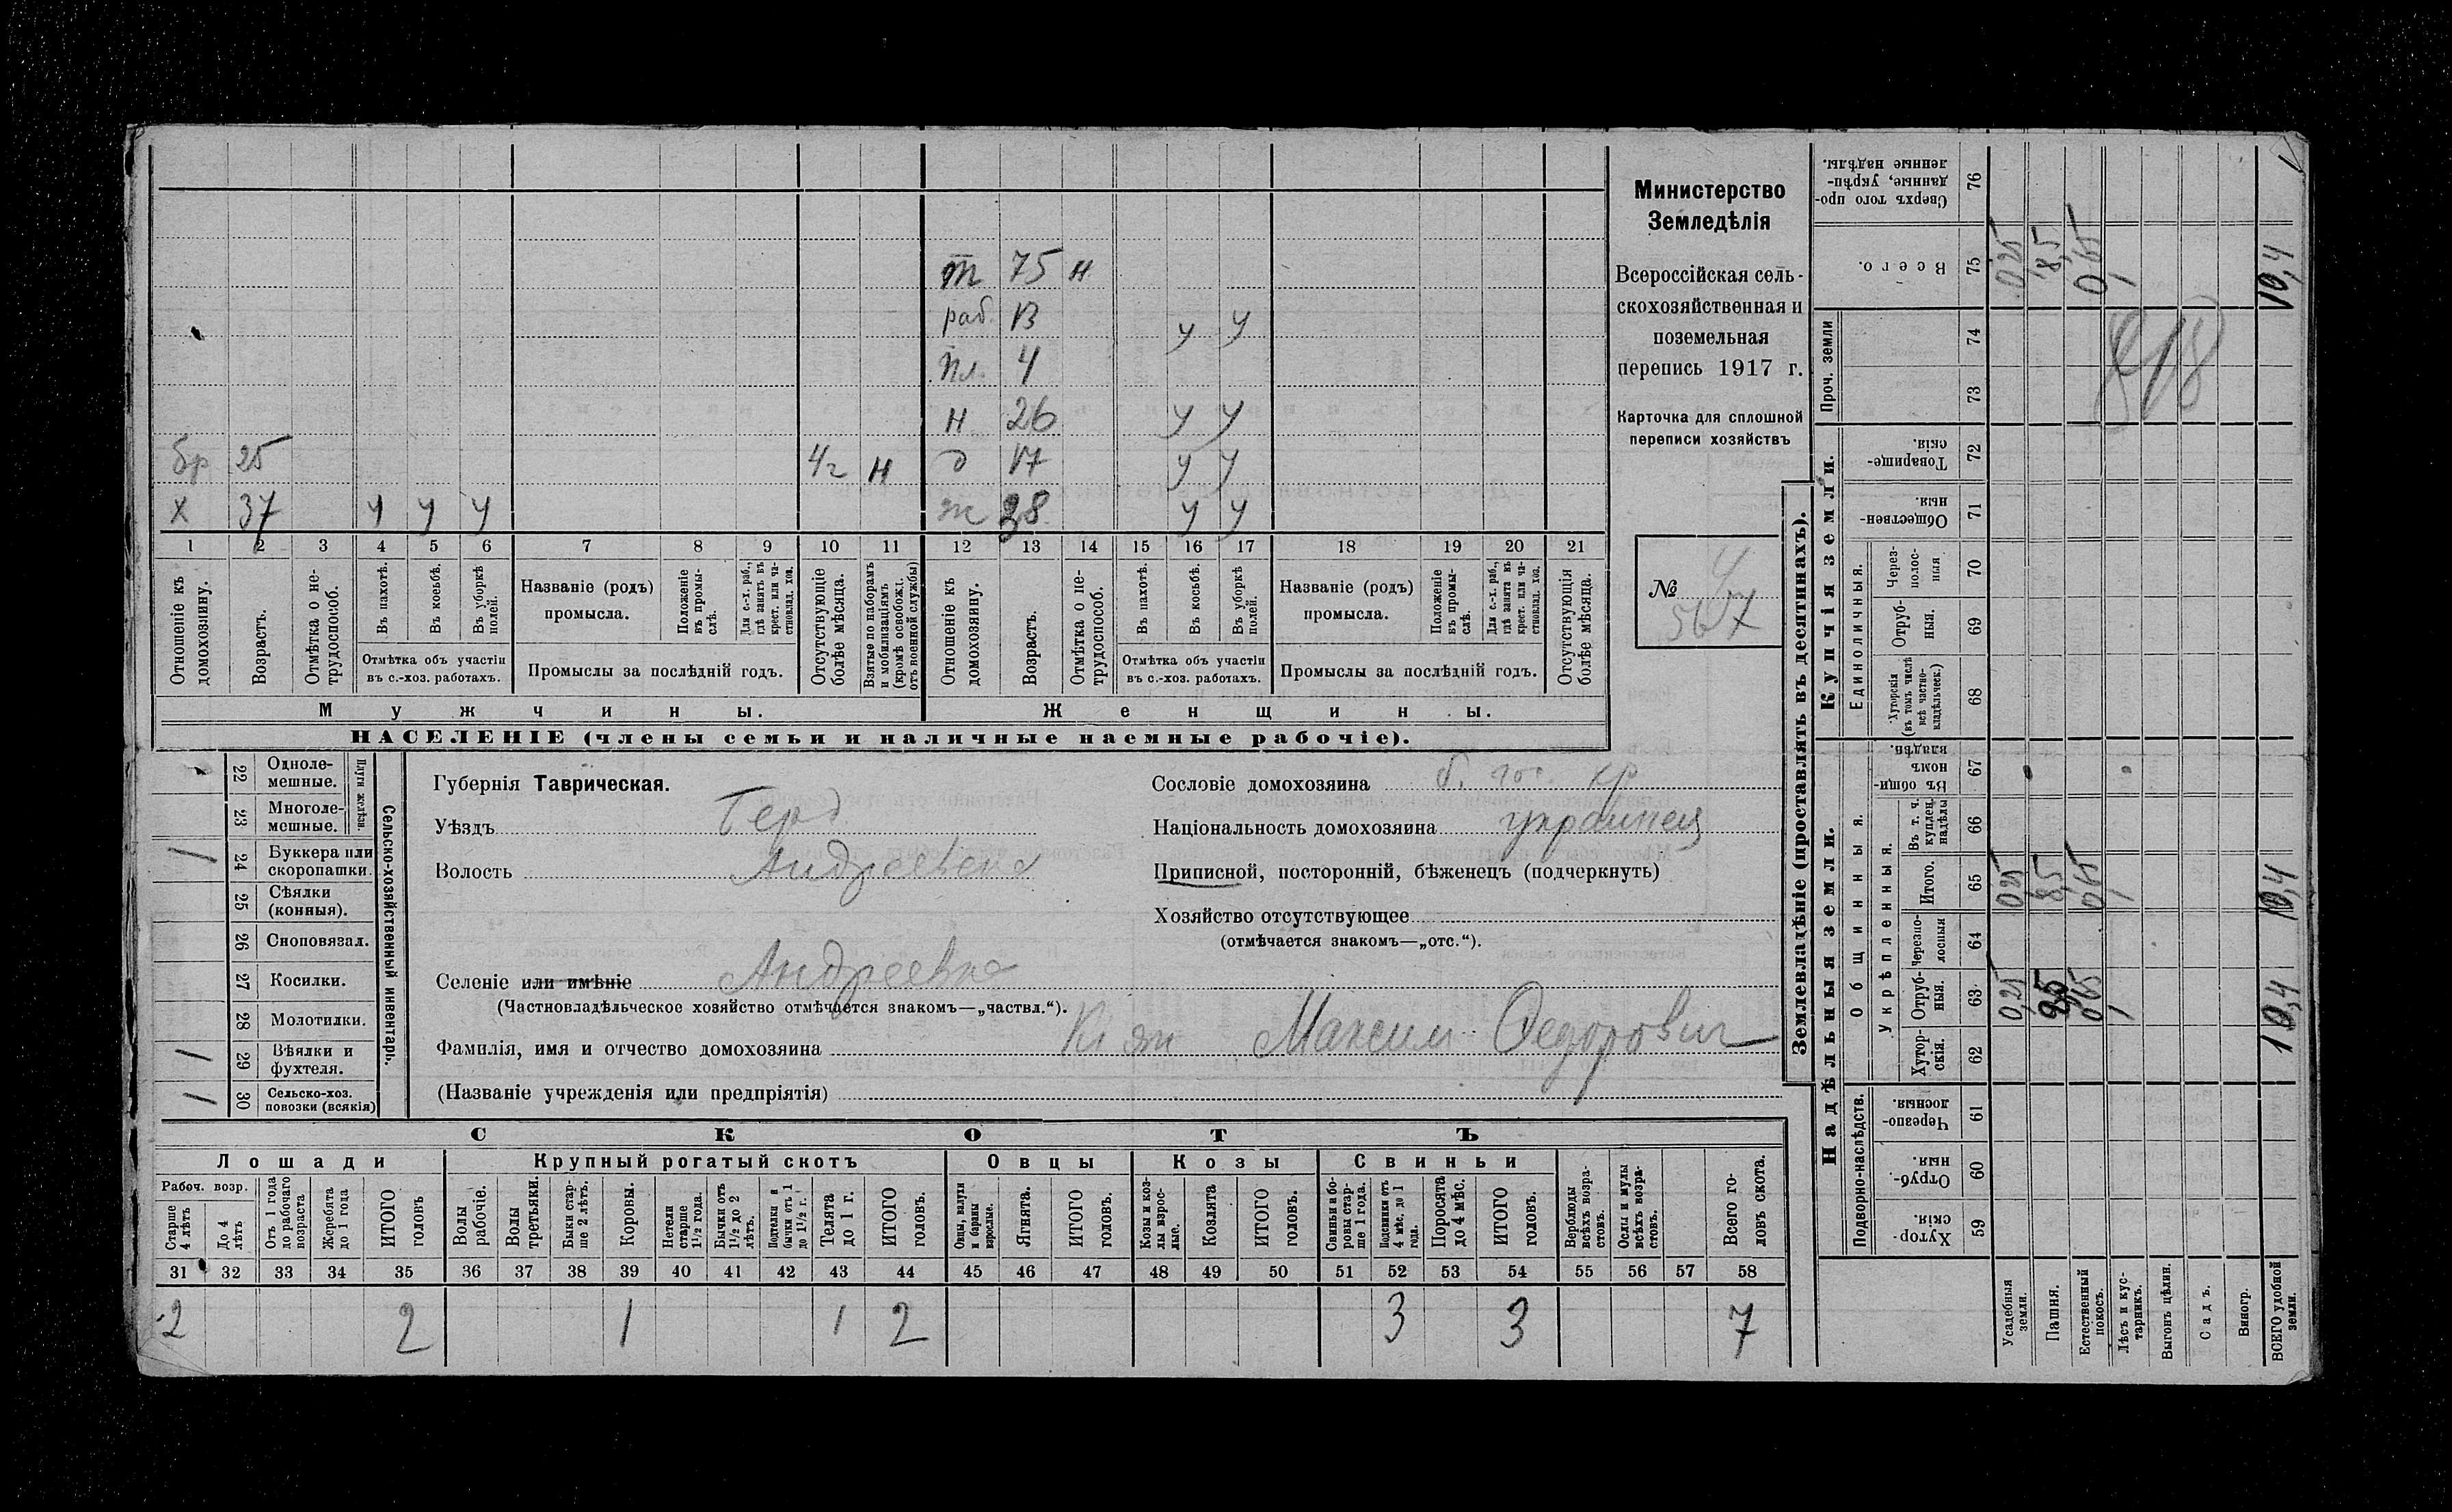 Министерство
Земледѣлія
Всероссійская сель-
скохозяйственная и
поземельная
перепись 1917 г.
Карточка для сплошной
переписи хозяйствъ
№ 4
567
т 75 н
раб. 13 у у
пл. 4
н 26 у у
бр 25 4г н д 17 у у
х 37 у у у ж 38 у у
1 2 3 4 5 6 7 8 9 10 11 12 13 14 15 16 17 18 19 20 21
Отношеніе къ домохозяину.
Возрастъ.
Отмѣтка о не-трудоспособ.
Въ пахотѣ.
Въ косьбѣ.
Въ уборкѣ полей.
Отмѣтка объ участіи
въ с.-хоз. работахъ.
Названіе (родъ)
промысла.
Положеніе въ промы-слѣ.
Для с.-х. раб., гдѣ занятъ въ крест. или ча-стновлад. хоз.
Промыслы за послѣдній годъ.
Отсутствующіе болѣе мѣсяца.
Взятые по наборамъ и мобилизаціямъ (кромѣ освобожд. отъ военной службы)
Отношеніе къ домохозяину.
Возрастъ.
Отмѣтка о не-трудоспособ.
Въ пахотѣ.
Въ косьбѣ.
Въ уборкѣ полей.
Отмѣтка объ участіи
въ с.-хоз. работахъ.
Названіе (родъ)
промысла.
Положеніе въ промы-слѣ.
Для с.-х. раб., гдѣ занята въ крест. или ча-стновлад. хоз.
Промыслы за послѣдній годъ.
Отсутствующія болѣе мѣсяца.
Мужчины. Женщины.
НАСЕЛЕНІЕ (члены семьи и наличные наемные рабочіе).
Сельско-хозяйственный инвентарь.
Плуги желѣзн.
22 Однолемешные.
23 Многолемешные.
1 24 Буккера или скоропашки.
25 Сѣялки (конныя).
26 Сноповязал.
27 Косилки.
28 Молотилки.
1 29 Вѣялки и фухтеля.
1 30 Сельско-хоз. повозки (всякія)
Губернія Таврическая.
Уѣздъ Берд
Волость Андреевска
Селеніе или имѣніе Андреевка
(Частновладѣльческое хозяйство отмѣчается знакомъ—„частвл.“).
Фамилія, имя и отчество домохозяина Кіяж Максим Федорович
(Названіе учрежденія или предпріятія)
Сословіе домохозяина б. гос. кр
Національность домохозяина украинец
Приписной, посторонній, бѣженецъ (подчеркнуть)
Хозяйство отсутствующее
(отмѣчается знакомъ—„отс.“).
СКОТЪ
Лошади Крупный рогатый скотъ Овцы Козы Свиньи
Рабоч. возр.
Старше 4 лѣтъ
До 4 лѣтъ
Отъ 1 года до рабочаго возраста
Жеребята до 1 года
ИТОГО головъ
Волы рабочіе.
Волы третьяки.
Быки стар-ше 2 лѣтъ.
Коровы.
Нетели старше 1½ года.
Бычки отъ 1½ до 2 лѣтъ.
Подтелки и бычки отъ 1 до 1½ г.
Телята до 1 г.
ИТОГО головъ.
Овцы, валухи и бараны взрослые.
Ягнята.
ИТОГО головъ.
Козы и коз-лы взрос-лые.
Козлята
ИТОГО головъ.
Свиньи и бо-ровы стар-ше 1 года.
Подсвинки отъ 4 мѣс. до 1 года.
Поросята до 4 мѣс.
ИТОГО головъ.
Верблюды всѣхъ возра-стовъ.
Ослы и мулы всѣхъ возра-стовъ.
Всего го-ловъ скота.
31 32 33 34 35 36 37 38 39 40 41 42 43 44 45 46 47 48 49 50 51 52 53 54 55 56 57 58
2 2 1 1 2 3 3 7
Землевладѣніе (проставлять въ десятинахъ).
Купчія земли.
Надѣльныя земли.
Сверхъ того про-данные, укрѣп-ленные надѣлы. 76
Всего. 75 0,25 8,5 0,65 1 10,4
Проч. земли 74
73
918
Товарище-скія. 72
Обществен-ныя. 71
Единоличныя.
Через-полос-ныя 70
Отруб-ныя. 69
Хуторскія (въ томъ числѣ всѣ частно-владѣльческ.) 68
Общинныя.
Въ общин-номъ владѣн. 67
Укрѣпленныя.
Въ т. ч. куплен. надѣлы 66
Итого. 65 0,25 8,5 0,65 1 10,4
Черезпо-лосныя 64
Отруб-ныя. 63 0,25 8,5 0,65 1 10,4
Хутор-скія. 62
Подворно-наслѣдств.
Черезпо-лосныя. 61
Отруб-ныя. 60
Хутор-скія. 59
Усадебныя земли.
Пашня.
Естественный покосъ.
Лѣсъ и кус-тарникъ.
Выгонъ цѣлин.
Садъ.
Виногр.
ВСЕГО удобной земли.